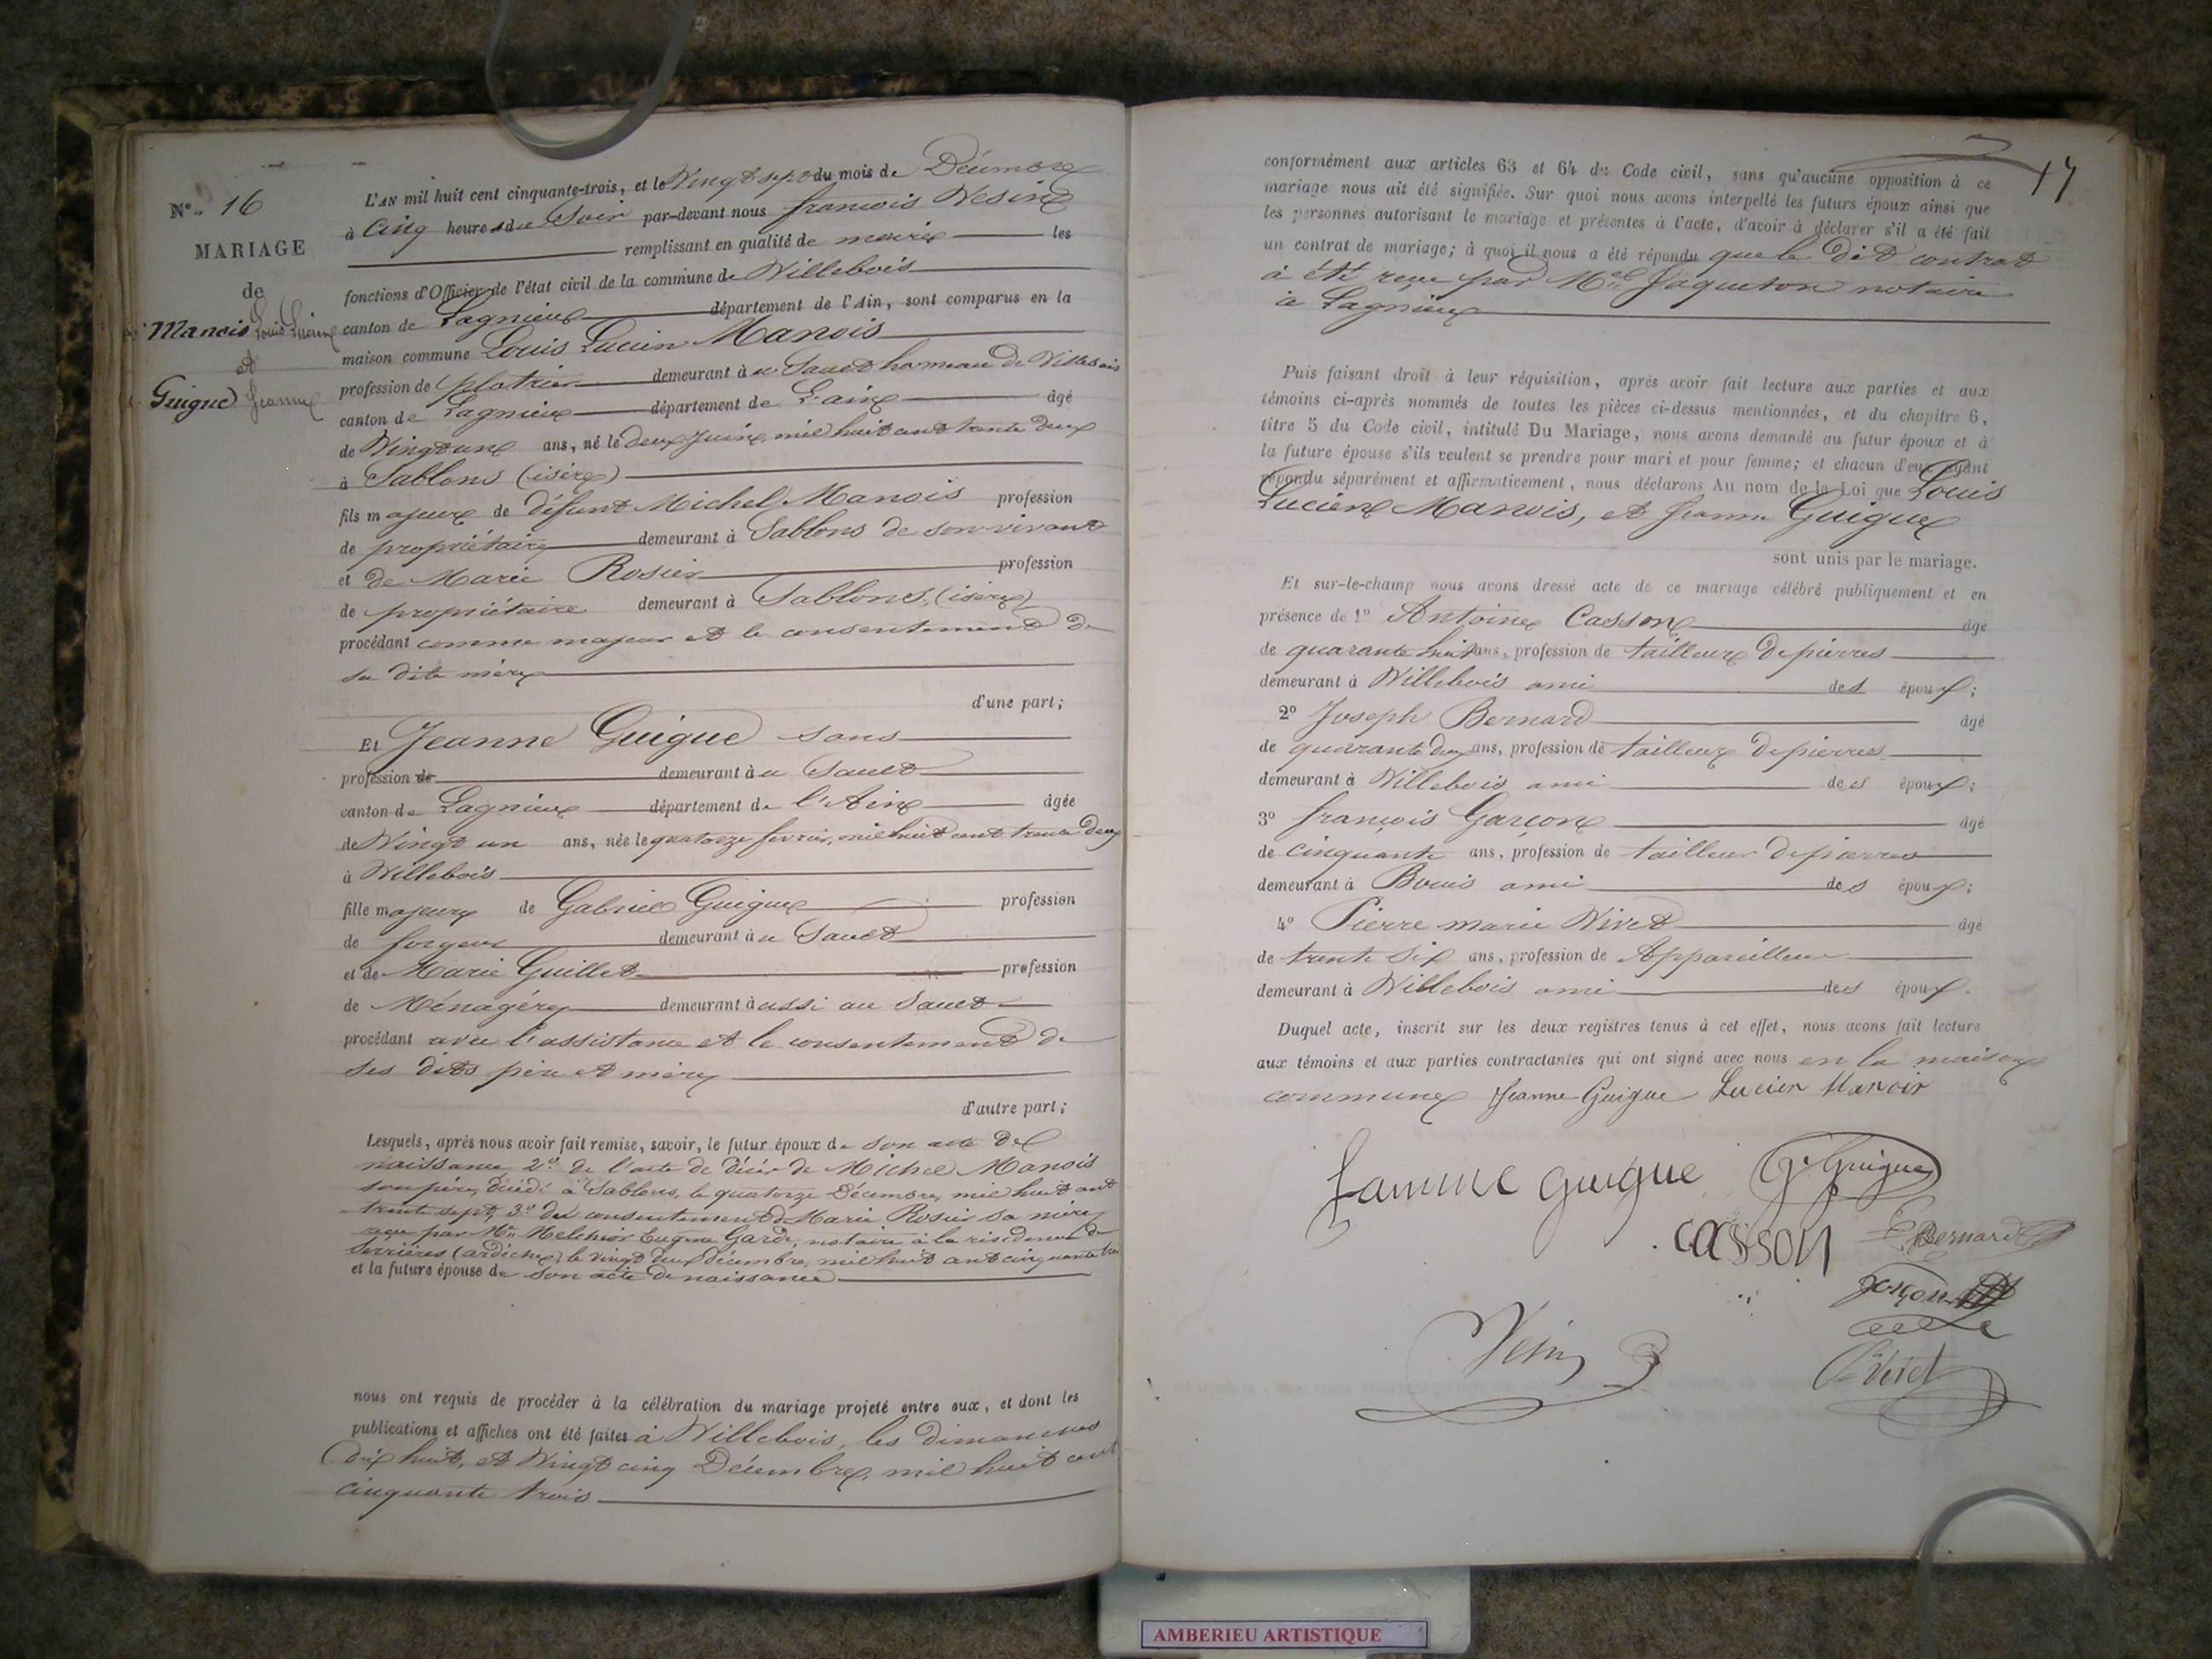 N° 16
MARIAGE
de
Manois Louis Lucien
et
Guigue Jeanne
L'AN mil huit cent cinquante-trois, et le Vingt sept du mois de Décembre
à Cinq heures du Soir par-devant nous francois Vesin
remplissant en qualité de maire les
fonctions d'Officier de l'état civil de la commune de Villebois
canton de Lagnieu département de l'Ain, sont comparus en la
maison commune Louis Lucien Manois
profession de platrier demeurant à u Sault hameau de Villebois
canton de Lagnieu département de L'ain âgé
de Vingt un ans, né le deux Juin, mil huit cent trente deux
à Sablons (isère)
fils majeur de défunt Michel Manois profession
de propriétaire demeurant à Sablons de son vivant
et de Marie Rosier profession
de propriétaire demeurant à Sablons, (isère)
procédant comme majeur et le consentement de
sa dite mère
d'une part;
Et Jeanne Guigue sans
profession de demeurant à u Sault
canton de Lagnieu département de l'Ain âgée
de Vingt un ans, née le quatorze fevrier, mil huit cent trente deux
à Villebois
fille majeure de Gabriel Guigue profession
de forgeur demeurant à u Sault
et de Marie Guillet profession
de Ménagère demeurant à ussi au Sault
procédant avec l'assistance et le consentement de
ses dits père et mère
d'autre part;
Lesquels, après nous avoir fait remise, savoir, le futur époux de son acte de
naissance 2° de l'acte de décès de Michel Manois
son père, décédé à Sablons, le quatorze Décembre, mil huit cent
trente sept, 3° du consentement de Marie Rosier sa mère
reçu par Me Melchior Eugène Garde, notaire à la résidence de
Serrières (ardèche), le vingt deux décembre, mil huit cent cinquante trois
et la future épouse de son acte de naissance
nous ont requis de procéder à la célébration du mariage projeté entre eux, et dont les
publications et affiches ont été faites à Villebois, les dimanches
dix huit, et Vingt cinq Décembre, mil huit cent
cinquante trois
17
conformément aux articles 63 et 64 du Code civil, sans qu'aucune opposition à ce
mariage nous ait été signifiée. Sur quoi nous avons interpellé les futurs époux ainsi que
les personnes autorisant le mariage et présentes à l'acte, d'avoir à déclarer s'il a été fait
un contrat de mariage; à quoi il nous a été répondu que le dit contrat
à été reçu par Me Jaqueton notaire
à Lagnieu
Puis faisant droit à leur réquisition, après avoir fait lecture aux parties et aux
témoins ci-après nommés de toutes les pièces ci-dessus mentionnées, et du chapitre 6,
titre 5 du Code civil, intitulé Du Mariage, nous avons demandé au futur époux et à
la future épouse s'ils veulent se prendre pour mari et pour femme; et chacun d'eux ayant
répondu séparément et affirmativement, nous déclarons Au nom de la Loi que Louis
Lucien Manois, et Jeanne Guigue
sont unis par le mariage.
Et sur-le-champ nous avons dressé acte de ce mariage célébré publiquement et en
présence de 1° Antoine Casson âgé
de quarante huit ans, profession de tailleur de pierres
demeurant à Villebois ami des époux;
2° Joseph Bernard âgé
de quarante deux ans, profession de tailleur de pierres
demeurant à Villebois ami des époux;
3° françois Garçon âgé
de cinquante ans, profession de tailleur de pierres
demeurant à Bouis ami des époux;
4° Pierre marie Vivet âgé
de trente six ans, profession de Appareilleur
demeurant à Villebois ami des époux.
Duquel acte, inscrit sur les deux registres tenus à cet effet, nous avons fait lecture
aux témoins et aux parties contractantes qui ont signé avec nous en la maison
commune Jeanne Guigue Lucien Manois
famme guigue G. Guigue
casson Bernard
garçon
Vesin
Vivet
AMBERIEU ARTISTIQUE